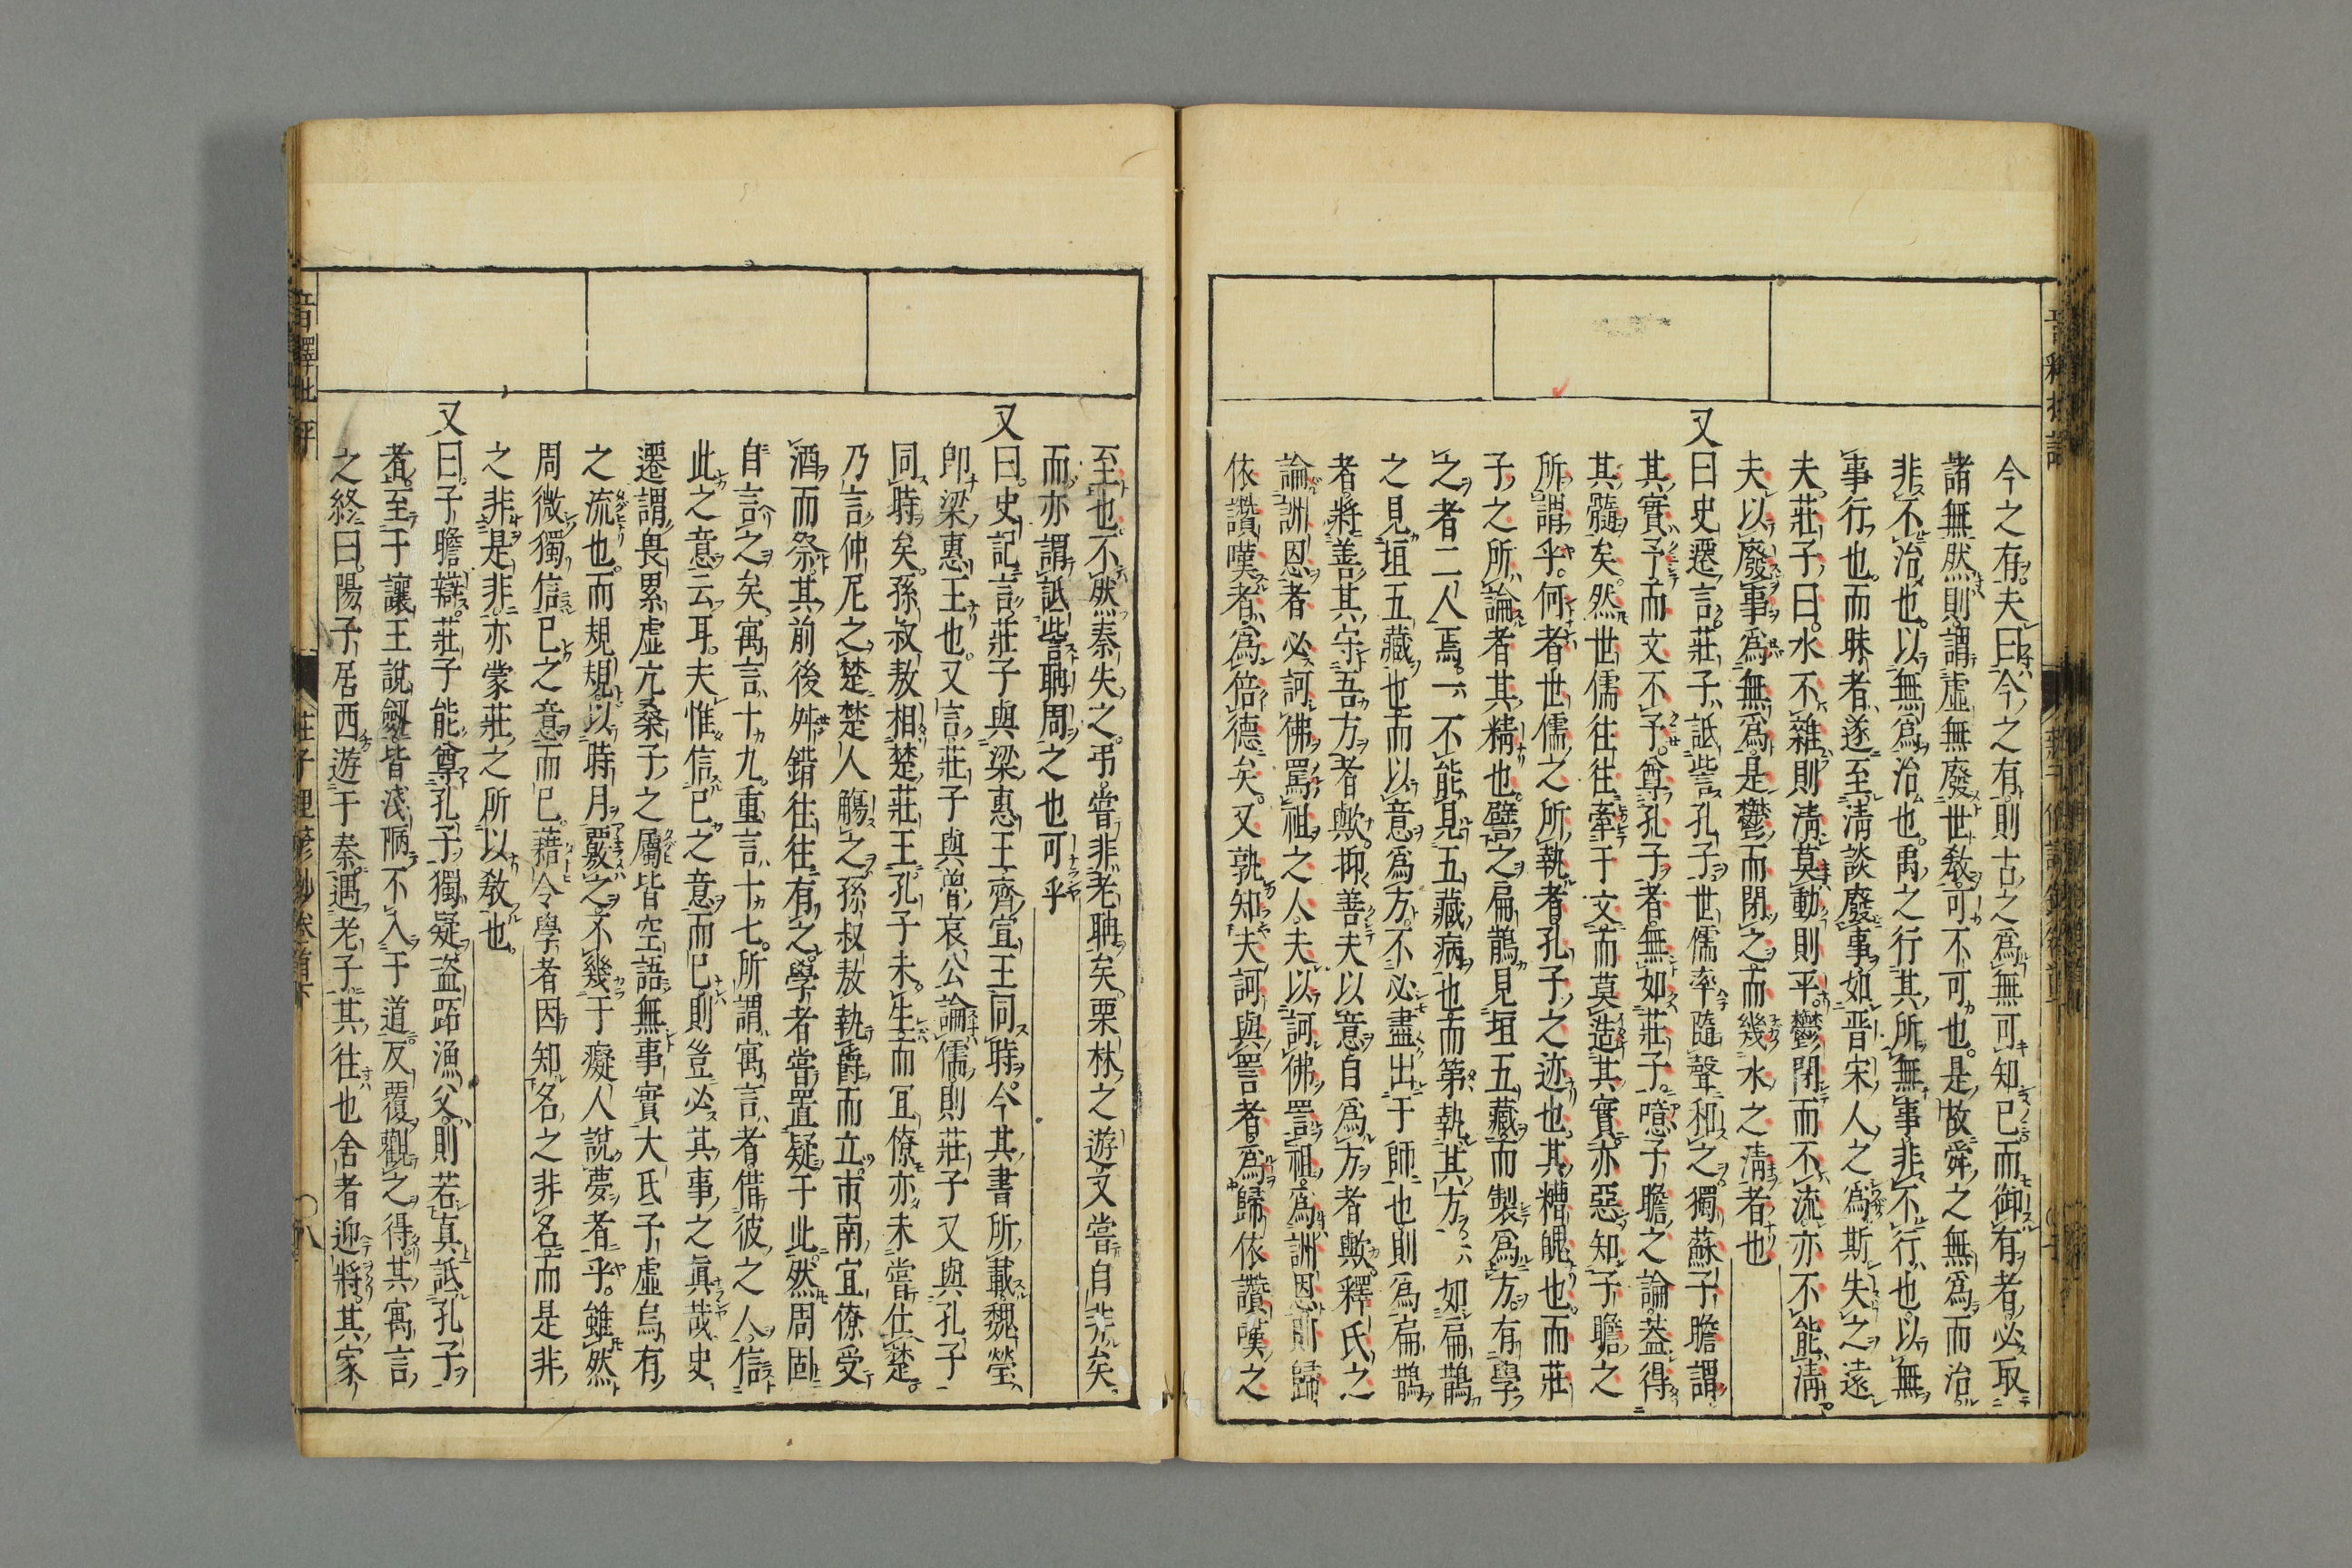 今之有夫曰今之有則古之爲無可知已而御有者必取
諸無然則謂虛無廢世敎可不可也是故舜之無爲而治
非不治也以無爲治也禹之行其所無事非不行也以無
事行也而昧者遂至淸談廢事如晋宋人之爲斯失之遠
夫莊子曰水不雜則淸莫動則平鬱閉而不流亦不能淸
夫以廢事爲無爲是鬱而閉之而幾水之淸者也
又曰史遷言莊子詆訾孔子世儒率隨聲和之獨蘇子瞻謂
其實予而文不予尊孔子者無如莊子噫子瞻之論葢得
其髓矣然世儒往往牽于文而莫造其實亦惡知子瞻之
所謂乎何者世儒之所執者孔子之迹也其糟魄也而莊
子之所論者其精也譬之扁鵲見垣五藏而製爲方有學
之者二人焉一不能見五藏病也而第執其方一如扁鵲
之見垣五藏也而以意爲方不必盡出于師也則爲扁鵲
者將善其守吾方者歟抑善夫以意自爲方者歟釋氏之
論詶恩者必訶佛罵祖之人夫以訶佛詈祖爲詶恩則歸
依讚嘆者爲倍德矣又孰知夫訶與詈者爲歸依讚嘆之
至也不然秦失之弔嘗非老聃矣栗林之遊又嘗自非矣
而亦謂詆訾聃周之也可乎
又曰史記言莊子與梁惠王齊宣王同時今其書所載魏瑩
卽梁惠王也又言莊子與魯哀公論儒則莊子又與孔子
同時矣孫叔敖相楚莊王孔子未生而宜僚亦未嘗仕楚
乃言仲尼之楚楚人觴之孫叔敖執爵而立市南宜僚受
酒而祭其前後舛錯往往有之學者當置疑于此然周固
自言之矣寓言十九重言十七所謂寓言者借彼之人信
此之意云耳夫惟信已之意而已則豈必其事之眞哉史
遷謂畏累虛亢桑子之屬皆空語無事實大氐子虛烏有
之流也而規規以時月覈之不幾于癡人說夢者乎雖然
周微獨信已之意而已藉令學者因知名之非名而是非
之非是非亦蒙莊之所以敎也
又曰子瞻辯莊子能尊孔子獨疑盜跖漁父則若真詆孔子
者至于讓王說劒皆淺陋不入于道反覆觀之得其寓言
之終曰陽子居西遊于秦遇老子其往也舍者迎將其家
音釋批評
莊子
卷首下
八